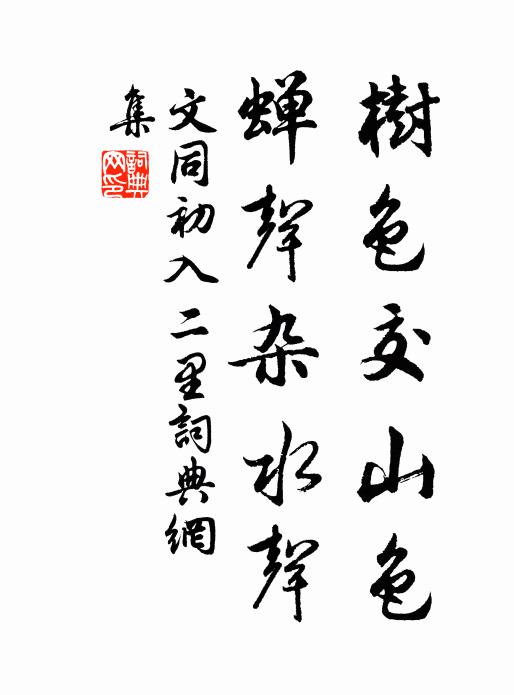 樹色交山色
蟬聲杂水聲
文同初入二里詞典網
集
詞典
网印